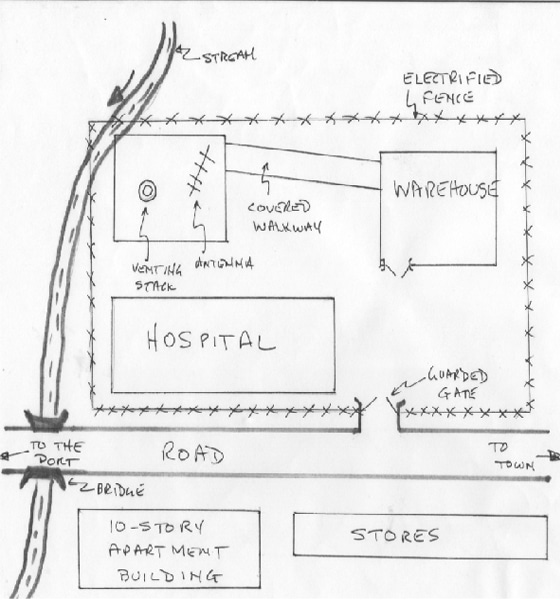 STREAM
ELECTRIFIED
FENCE
WAREHOUSE
COVERED
WALKWAY
VENTING
STACK
ANTENNA
HOSPITAL
GUARDED
GATE
TO THE
PORT
ROAD
TO
TOWN
BRIDGE
10-STORY
APARTMENT
BUILDING
STORES